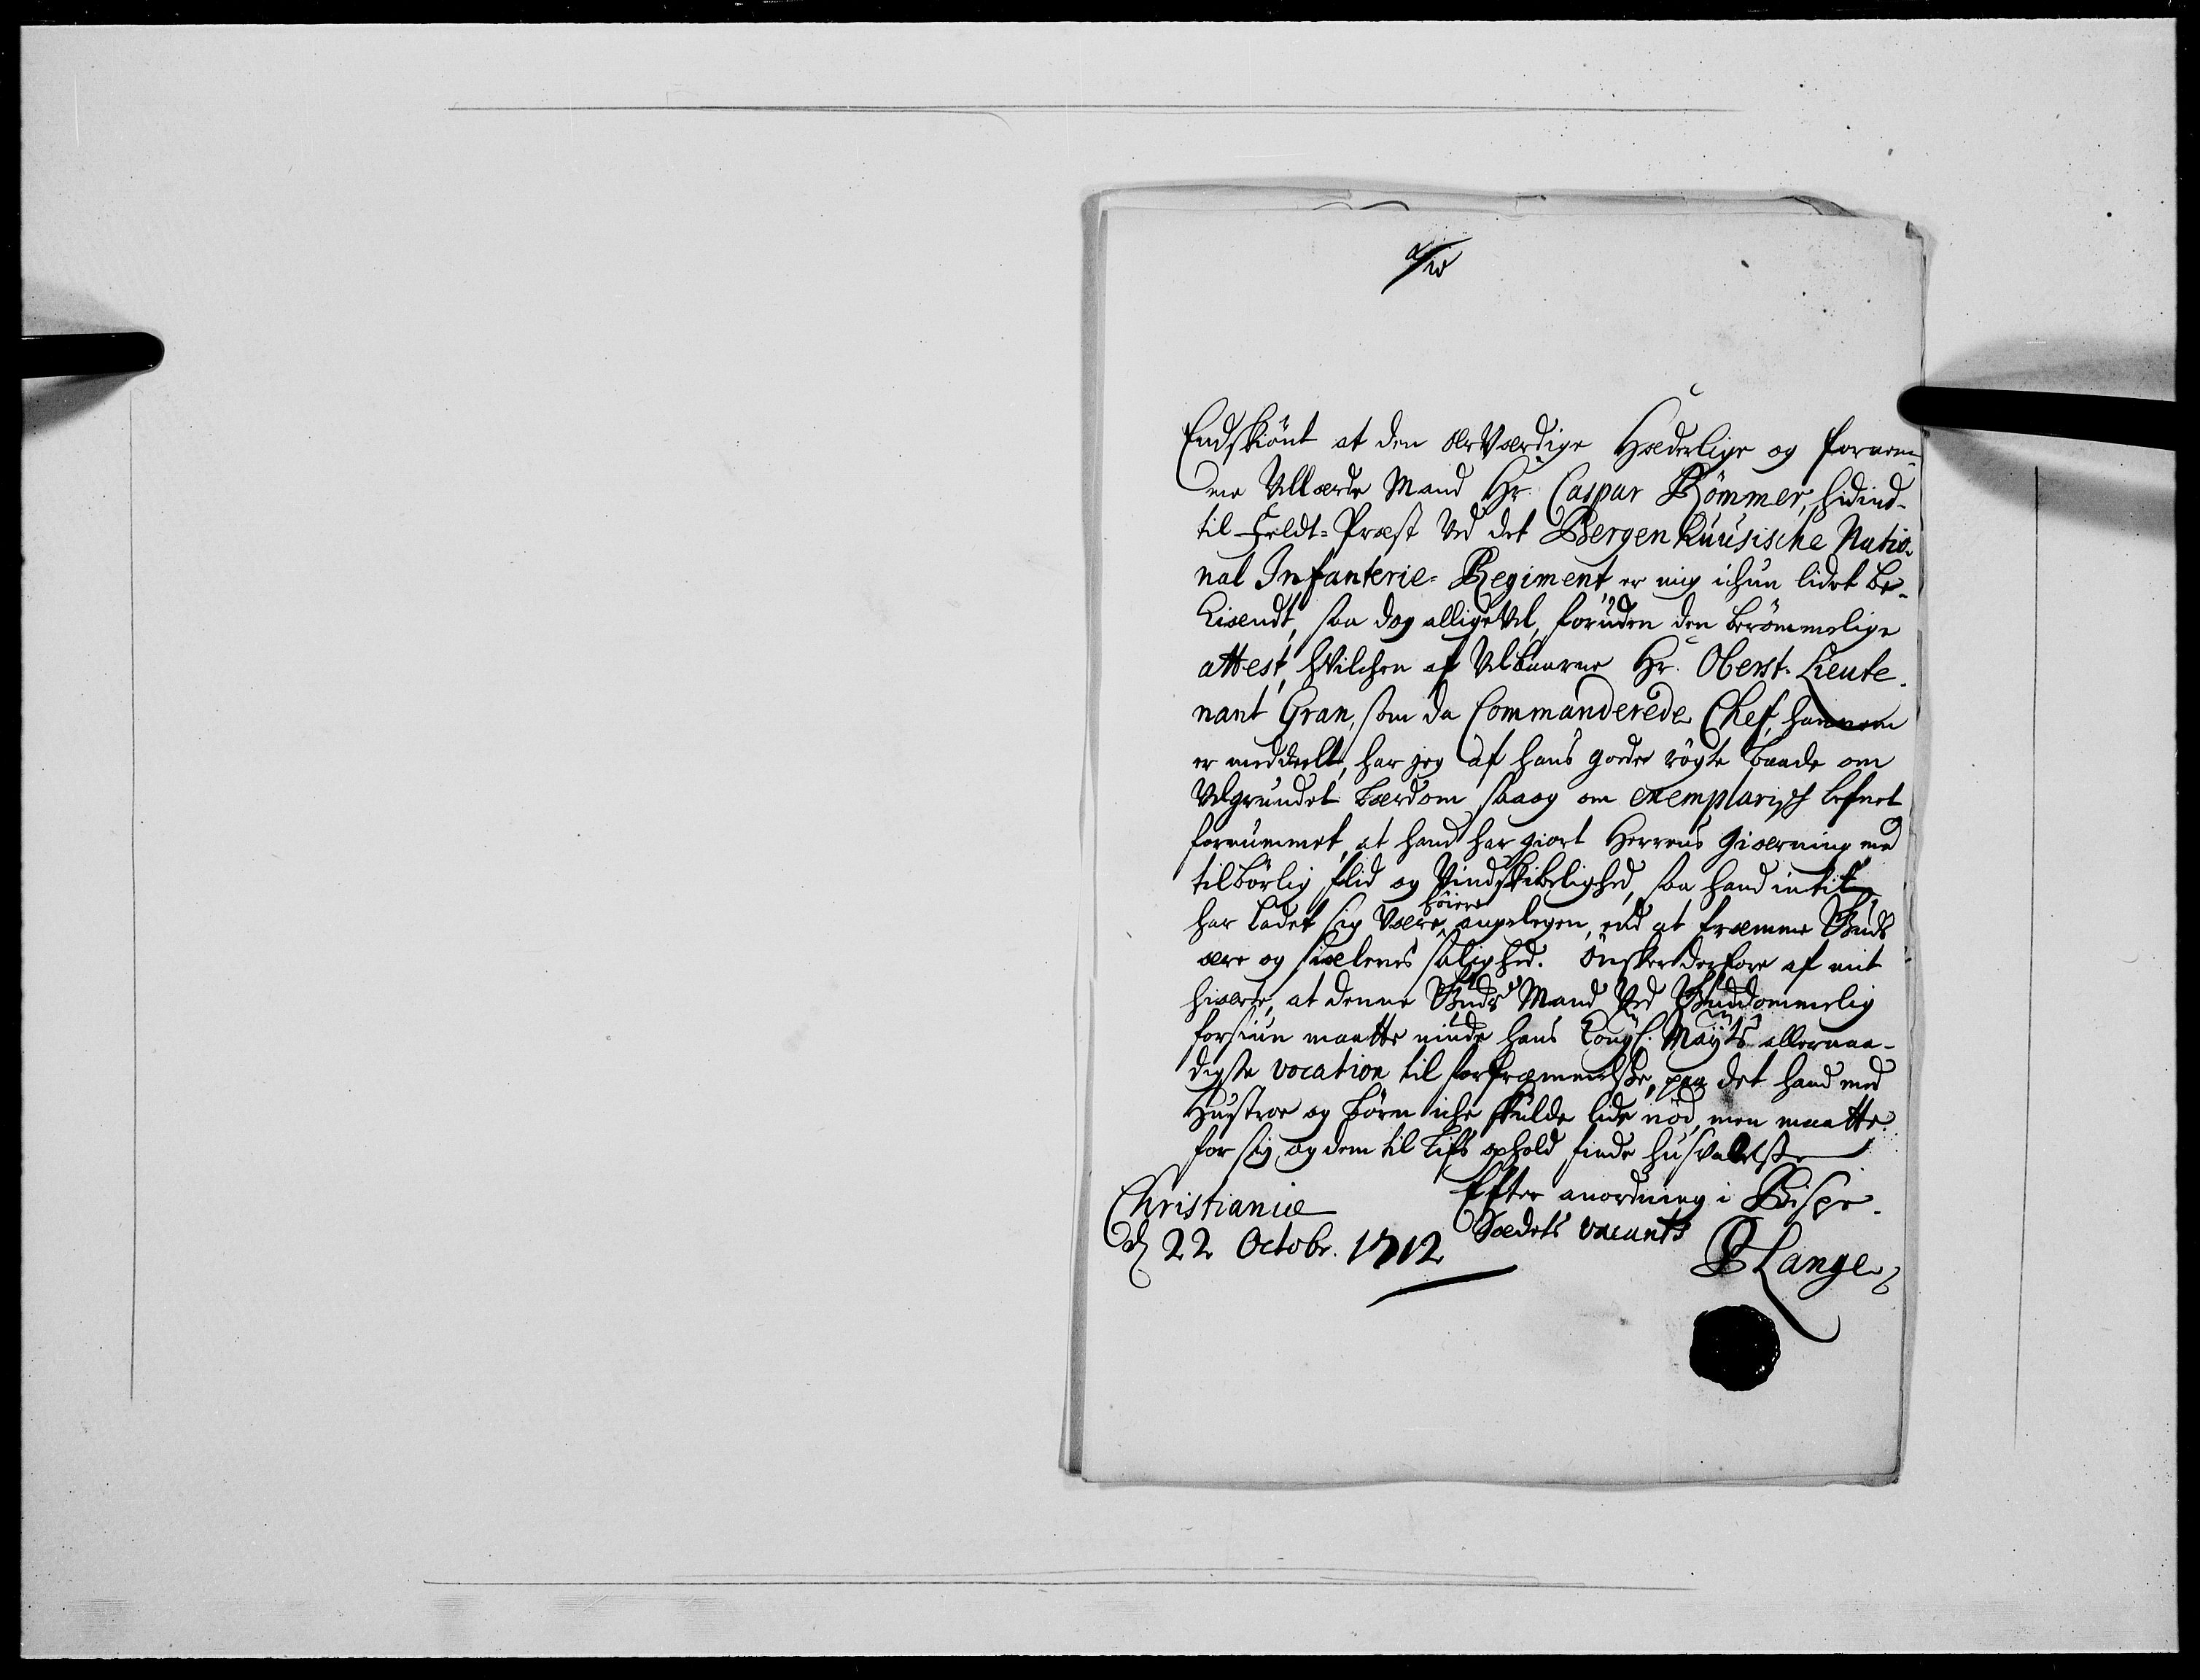 Endskiönt at den ærværdige Hæderlige og fornem-
me Vellærde Mand Hr. Caspar Römmer, hidind-
til Feldt-Præst ved det Bergenhuusische Natio-
nal Infanterie-Regiment, er mig ichun lidet be-
kiendt, saa dog alligevel, foruden den berömmelige
attest, hvilchen af Velbaarne Hr. Oberst-Lieute-
nant Gran, som da Commanderede Chef, hannem
er meddeelt, har jeg af hans goede rögte baade om
velgrundet Lærdom saa og om exemplarisch lefnet
fornummet, at hand har giort Herrens Gierning med
tilbörlig flid og Vindskibelighed, saa hand intit
har ladet sig være höiere angelegen, end at fremme Guds
ære og siælenes salighed. Ønsker derfore af mit
hierte, at denne Guds Mand ved Guddommelig
forsiun maatte niude hans Kongl. Mayts allernaa-
digste vocation til forfremmelsse, paa det hand med
Hustroe og börn iche skulde lide nöd, men maatte
for sig og dem til Lifs ophold finde husvalelsse
Christianiæ
d 22 Octobr. 1712
Efter anordning i Bispe-
Sædets vacants
P Lange